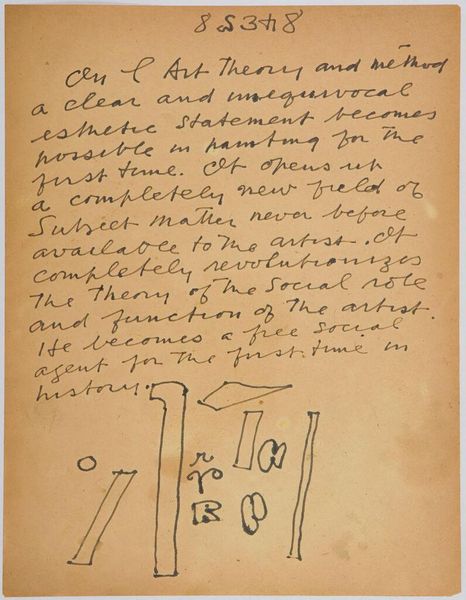 8 2 3 4 8
Art Theory and method
a clear and unequivocal
esthetic statement becomes
possible in painting for the
first time. It opens up
a completely new field of
Subject matter never before
available to the artist. It
completely revolutionizes
The Theory of the Social role
and function of the artist.
He becomes a free Social
agent for the first time in
history.
r
R